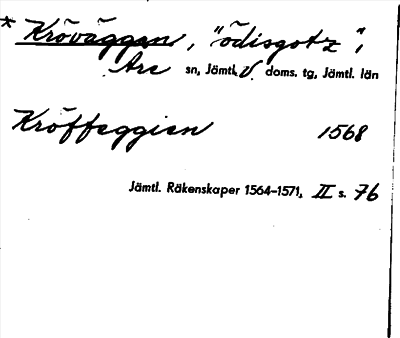 * Kröväggen, "ödisgotz",
Are sn, Jämtl. V. doms. tg, Jämtl. län
Kröffeggien 1568
Jämtl. Räkenskaper 1564-1571, II s. 76